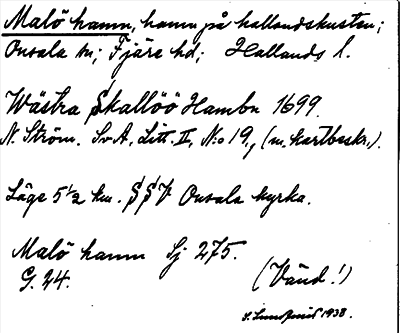 Malö hamn, hamn på hallandskusten;
Onsala sn; Fjäre hd; Hallands l.
Wästra Skallöö Hambn 1699.
N. Ström. Sv A, Litt. II, No 19, (m. kartbeskr.).
Läge 5 1/2 km. SSV Onsala kyrka.
Malö hamn Sj 275.
G. 24.
(Vänd!)
1938.